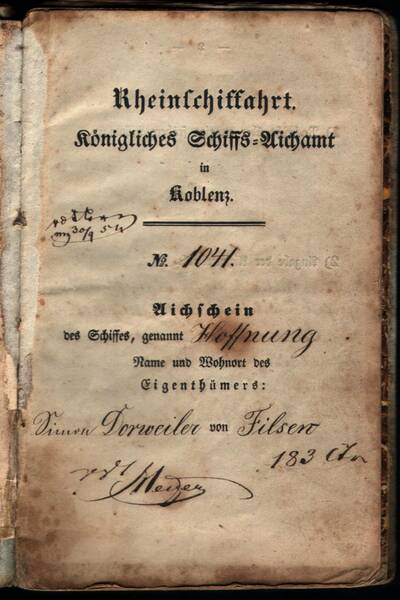 Rheinschiffahrt.
Königliches Schiffs-Aichamt
in
Koblenz.
30/9 54
No. 1041.
Aichschein
des Schiffes, genannt Hoffnung
Name und Wohnort des
Eigenthümers:
Simon Dorweiler von Filsen
183 Ctr
Meyer